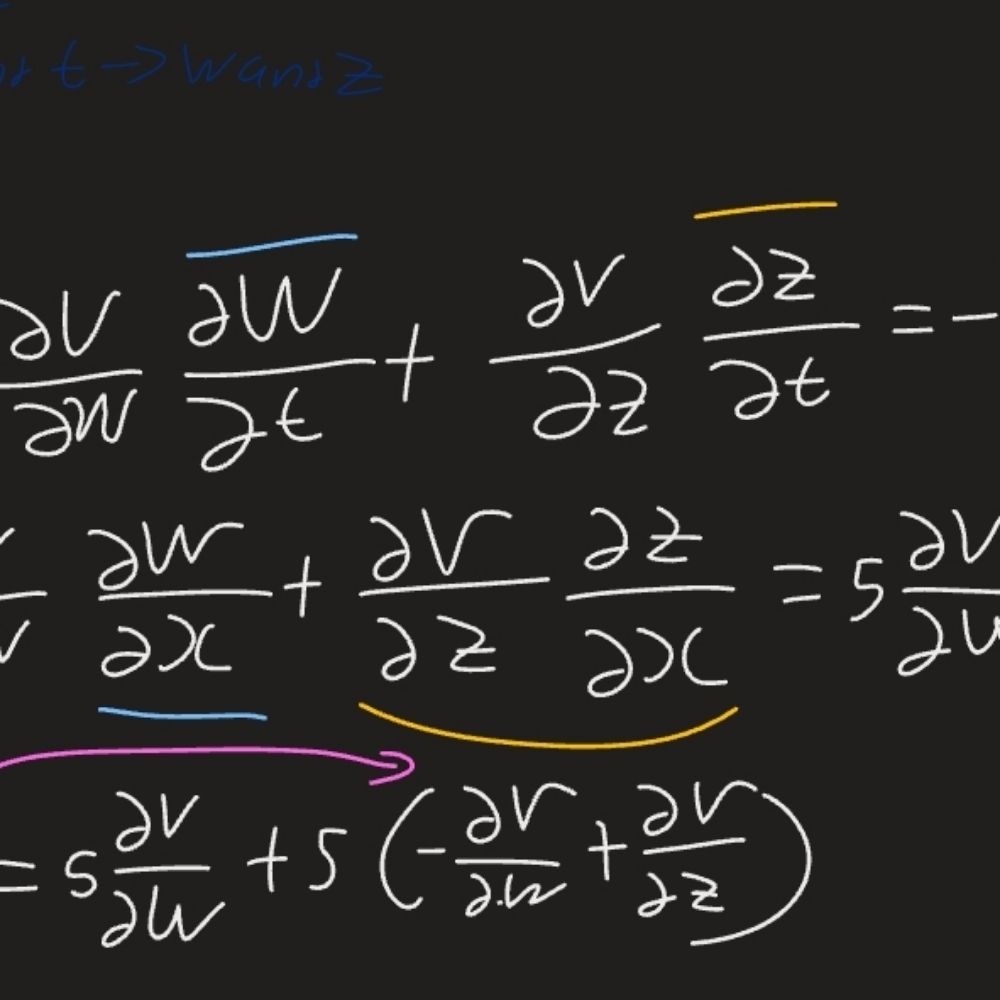 t → w and z
∂V/∂W ∂W/∂t + ∂V/∂z ∂z/∂t = -
∂W/∂x + ∂V/∂z ∂z/∂x = 5 ∂V/∂W
= 5 ∂V/∂W + 5 (-∂V/∂W + ∂V/∂z)